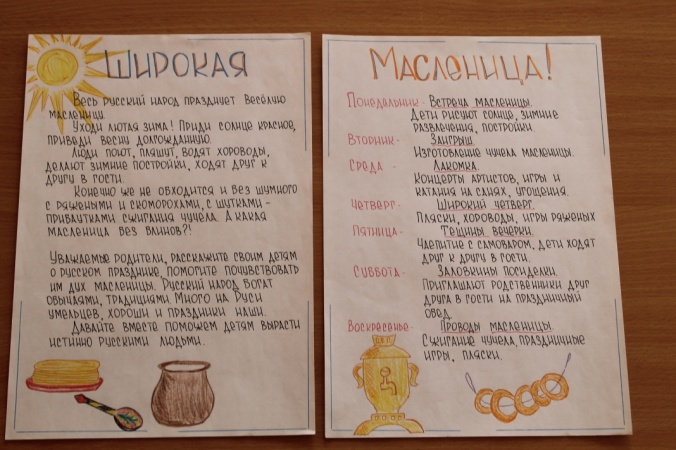 Широкая
Весь русский народ празднует весёлую
масленицу.
Уходи лютая зима! Приди солнце красное,
приведи весну долгожданную.
Люди поют, пляшут, водят хороводы,
делают зимние постройки, ходят друг к
другу в гости.
Конечно же не обходится и без шумного
с ряжеными и скоморохами, с шутками-
прибаутками сжигания чучела. А какая
масленица без блинов?!
Уважаемые родители, расскажите своим детям
о русском празднике, помогите почувствовать
им дух масленицы. Русский народ богат
обычаями, традициями Много на Руси
умельцев, хороши и праздники наши.
Давайте вместе поможем детям вырасти
истинно русскими людьми.
Масленица!
Понедельник- Встреча масленицы.
Дети рисуют солнце, зимние
развлечения, постройки.
Вторник- Заигрыш.
Изготовление чучела масленицы.
Среда - Лакомка.
Концерты артистов, игры и
катания на санях, угощения.
Четверг- Широкий четверг.
Пляски, хороводы, игры ряженых
Пятница- Тещины вечерки.
Чаепитие с самоваром, дети ходят
друг к другу в гости.
Суббота- Заловкины посиделки.
Приглашают родственники друг
друга в гости на праздничный
обед.
Воскресенье- Проводы масленицы.
Сжигание чучела, праздничные
игры, пляски.